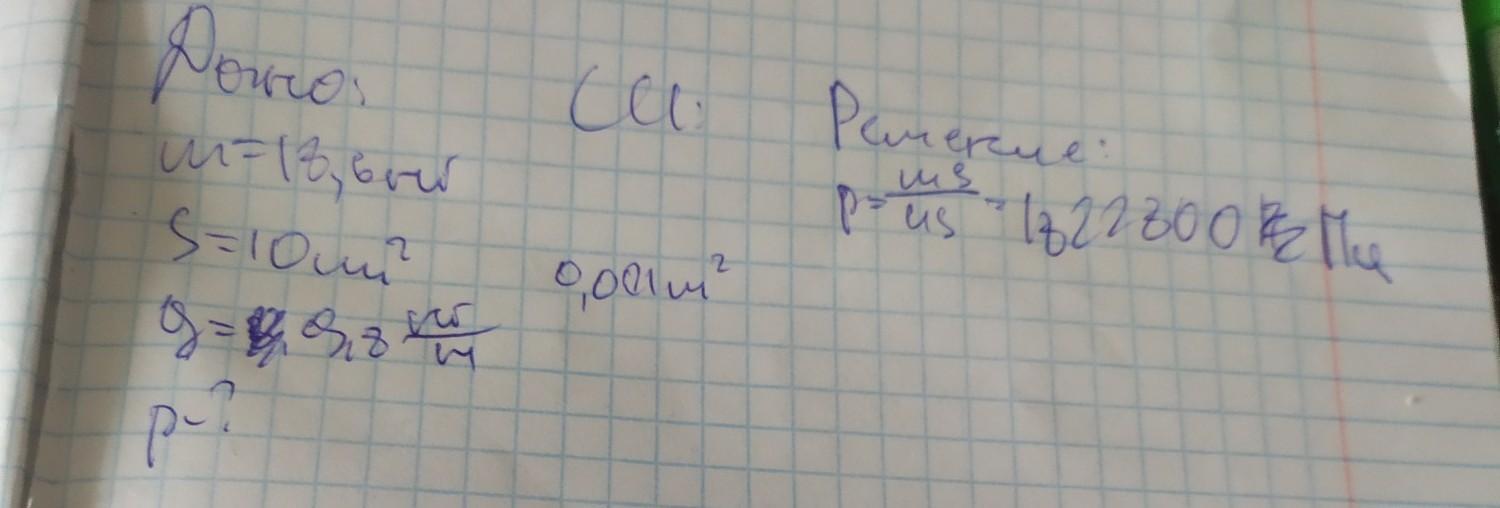 Дано:
m=18,6 кг
S=10 см²
g= 9,8 кг/м
p-?
СИ:
0,001 м²
Решение:
p= mg/S = 1822800 Па